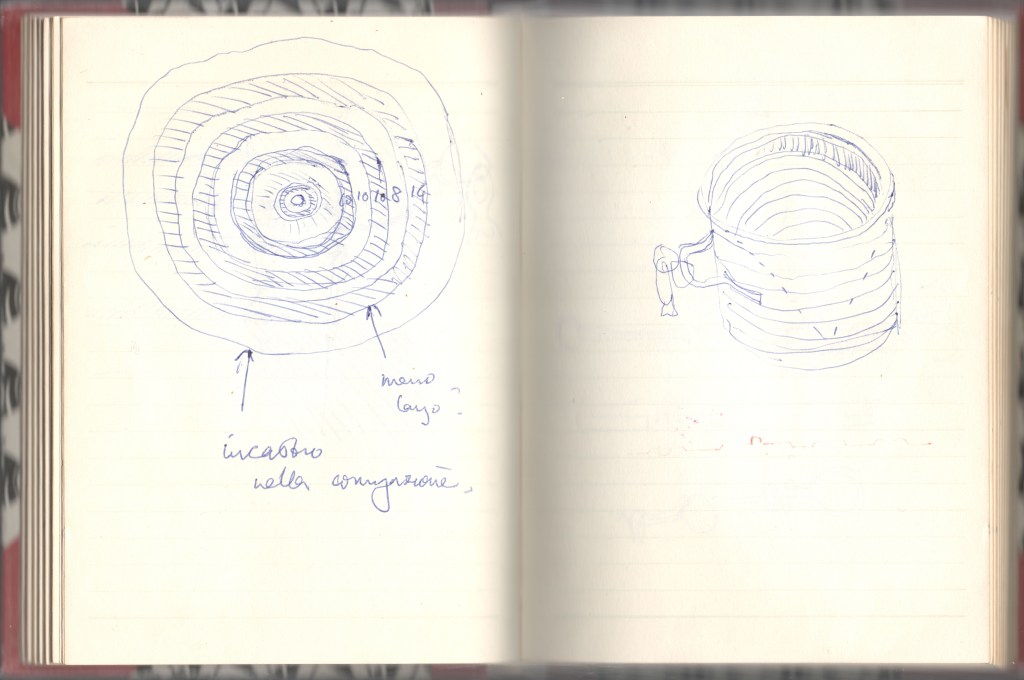 10 10 8 14
meno
largo?
incastro
nella corrugazione